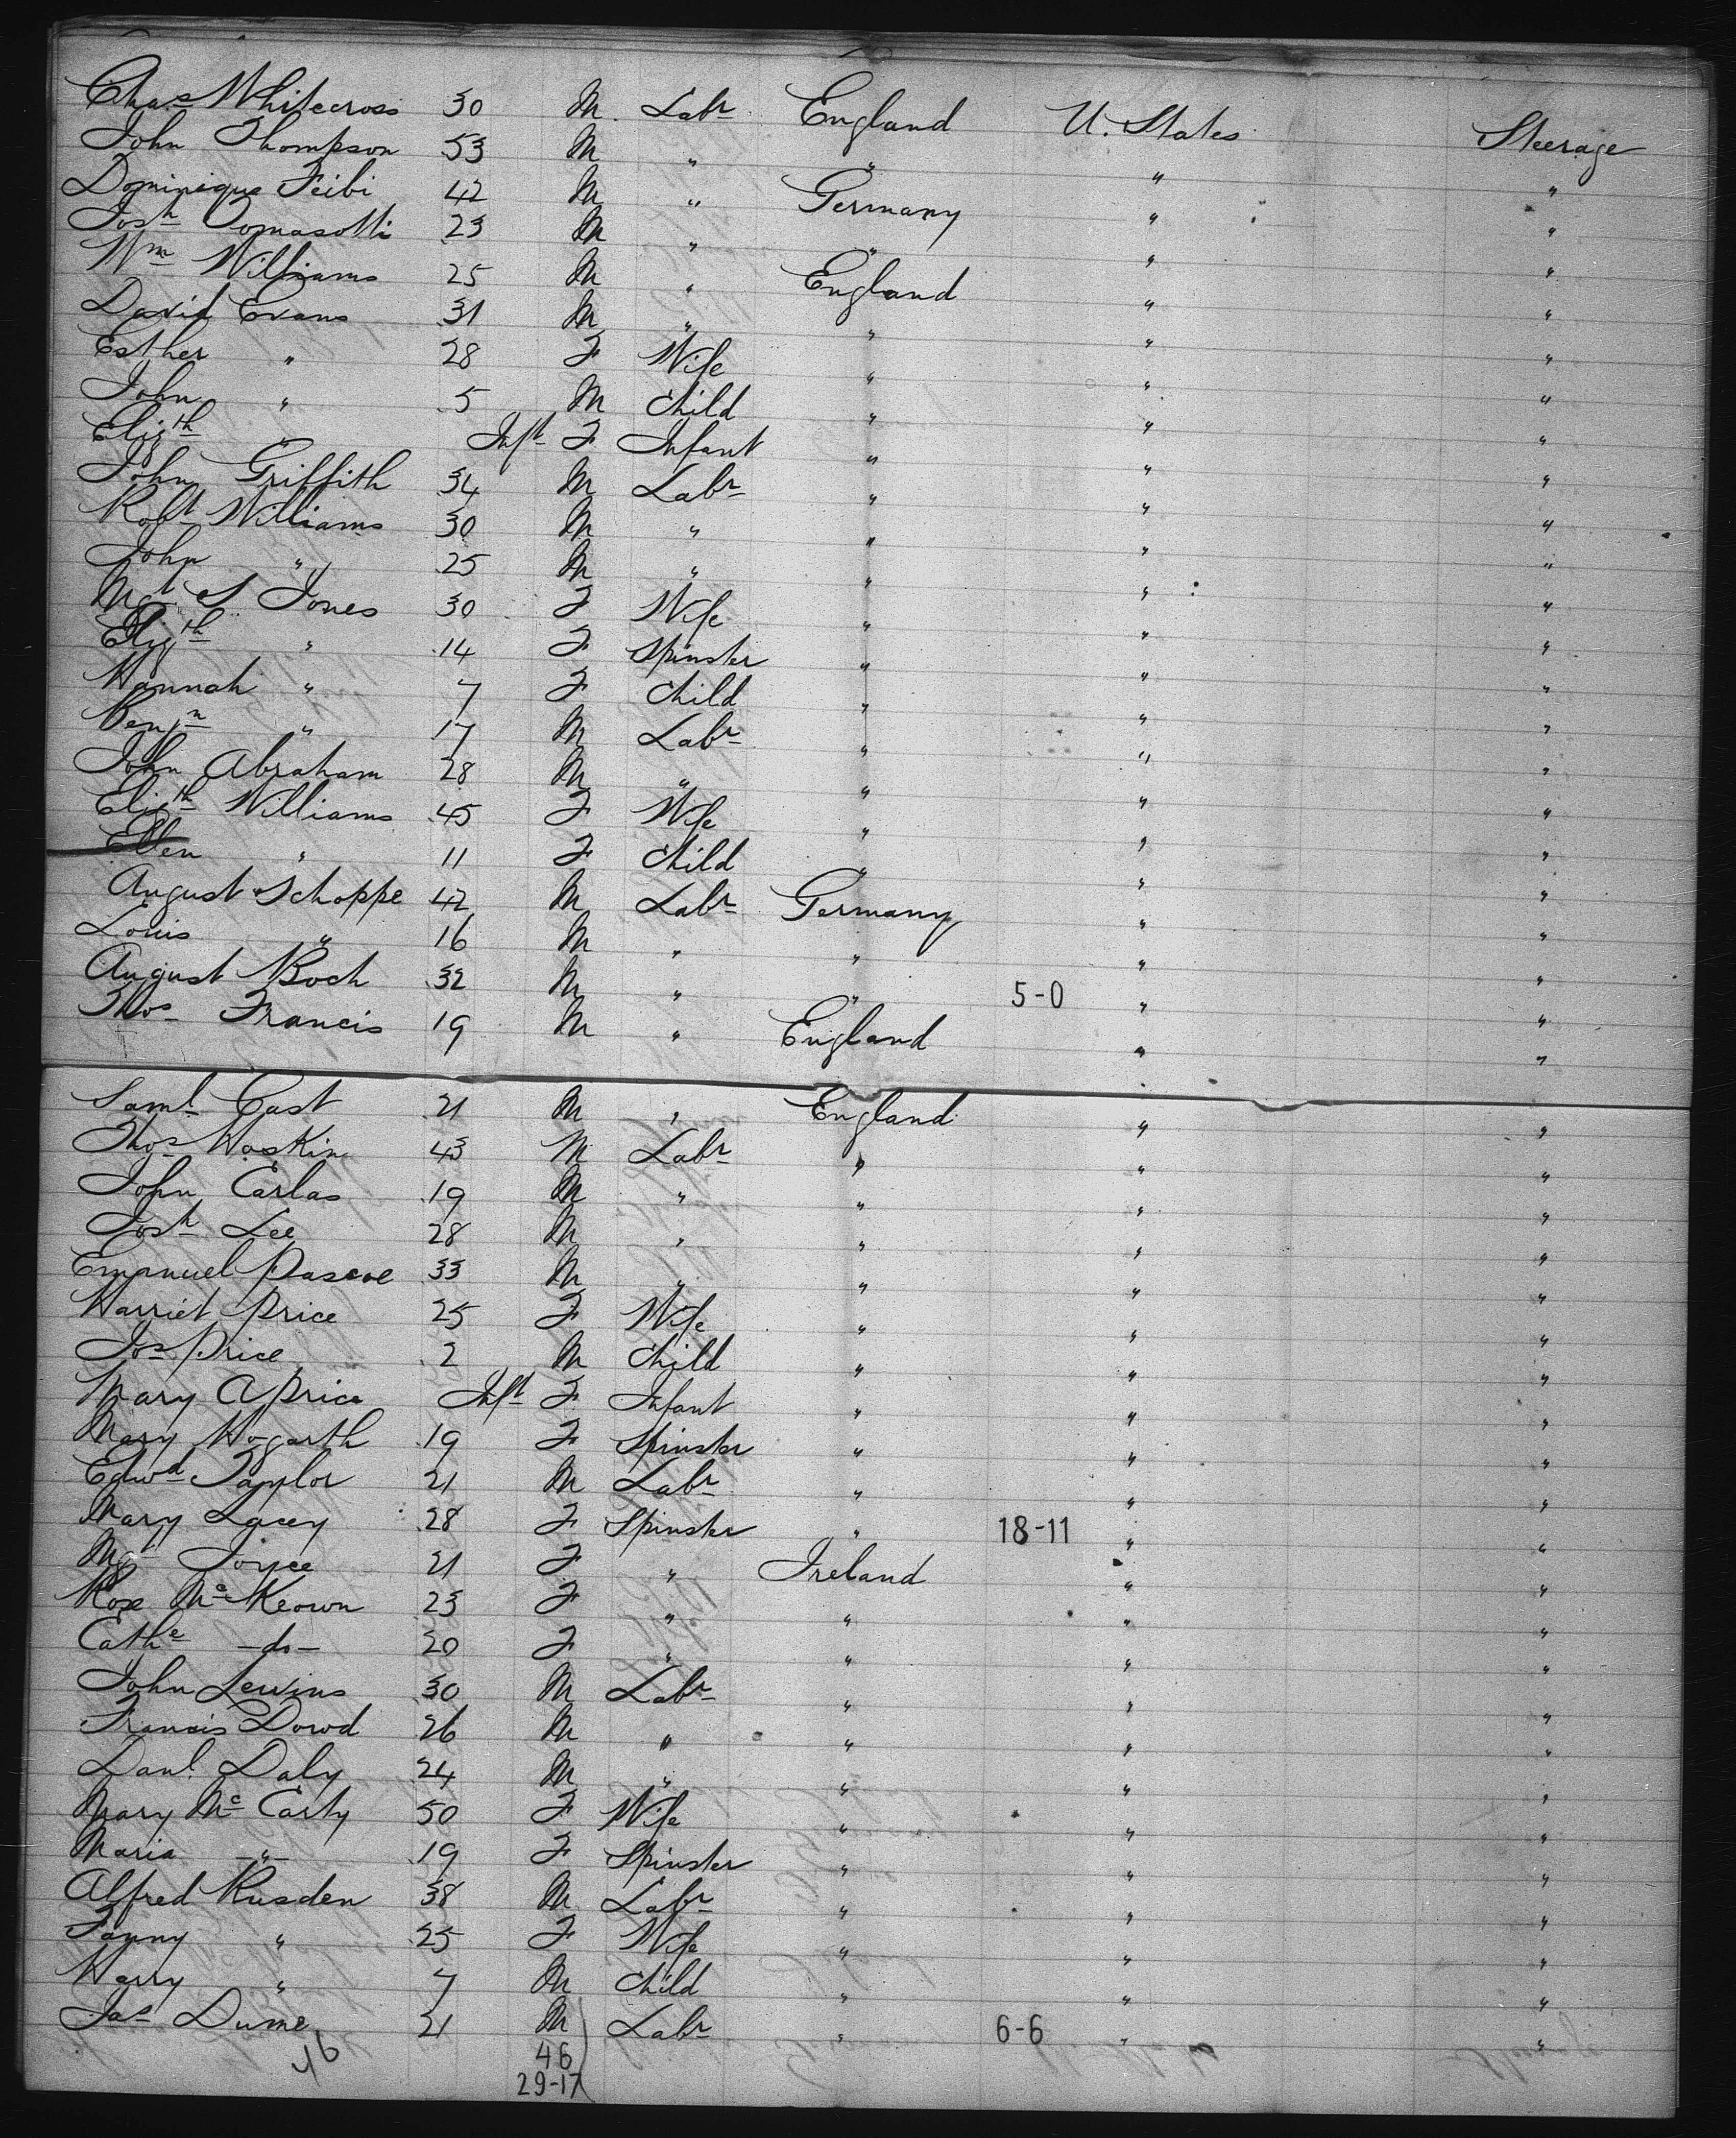 Chas Whitecross 30 M. Labr England U. States Steerage
John Thompson 53 M " " " "
Dominique Feibi 42 M " Germany " "
Josh Tomasotti 23 M " " " "
Wm Williams 25 M " England " "
David Evans 31 M " " " "
Esther " 28 F Wife " " "
John " 5 M Child " " "
Elizth " Inft F Infant " " "
John Griffith 34 M Labr " " "
Robt Williams 30 M " " " "
John " 25 M " " " "
Mgt S Jones 30 F Wife " " "
Elizth " 14 F Spinster " " "
Hannah " 7 F Child " " "
Benjn " 17 M Labr " " "
John Abraham 28 M " " " "
Elizth Williams 45 F Wife " " "
Ellen " 11 F Child " " "
August Schoppe 42 M Labr Germany " "
Louis " 16 M " " " "
August Boch 32 M " " 5-0 " "
Thos Francis 19 M " England " "
Saml Cast 21 M " England " "
Thos Hoskin 43 M Labr " " "
John Carlas 19 M " " " "
Josh Lee 28 M " " " "
Emanuel Pascoe 33 M " " " "
Harriet Price 25 F Wife " " "
Jos Price 2 M Child " " "
Mary A Price Inft F Infant " " "
Mary Hogarth 19 F Spinster " " "
Edwd Taylor 21 M Labr " " "
Mary Lacey 28 F Spinster " 18-11 " "
Mgt Joyce 21 F " Ireland " "
Rose McKeown 23 F " " " "
Cathe -do- 20 F " " " "
John Levins 30 M Labr " " "
Francis Dowd 26 M " " " "
Danl Daly 24 M " " " "
Mary Mc Carty 50 F Wife " " "
Maria -"- 19 F Spinster " " "
Alfred Rusden 38 M Labr " " "
Fanny " 25 F Wife " " "
Harry " 7 M Child " " "
Jas Dume 21 M Labr " 6-6 " "
46 46
29-17